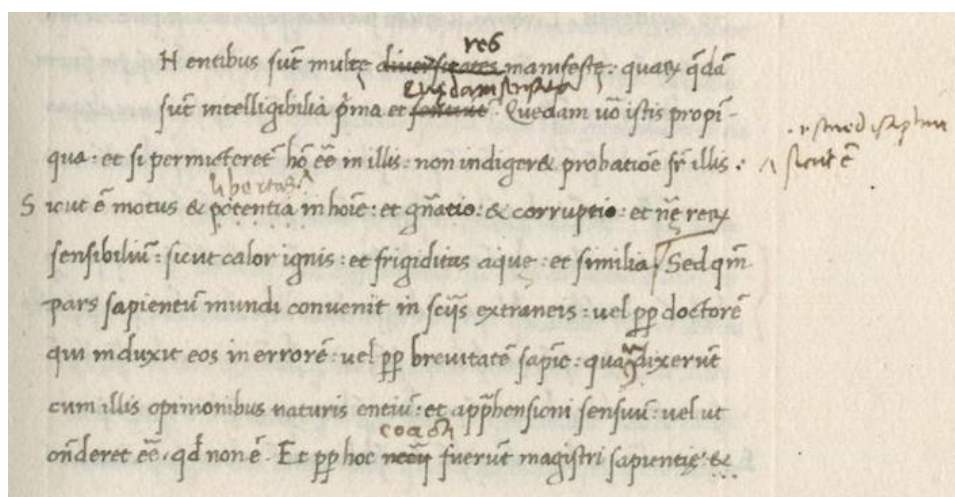 res
N entibus sūt multę diversitates manifestę: quaꝝ q̄dā
sūt intelligibilia p̄ma et Quedam ūo istis propī-
qua: et si permicteret̄ hoī eē in illis: non indigeret probatiōe sr̄ illis:
sicut ē
libertas
S icut ē motus & potentia in hoīe: et gn̄atio: & corruptio: et nę̄ reꝝ
sensibiliū: sicut calor ignis: et frigiditas aquę: et similia/ Sed qm̄
pars sapientū mundi convenit in scijs extraneis: vel pp̄ doctorē
qui induxit eos in errorē: vel pp̄ brevitatē sapīe: dixerūt
cum illis opinionibus naturis entiū: et app̄hensioni sensuū: vel ut
coacti
on̄deret eē, qd̄ non ē. Et pp̄ hoc fuerūt magistri sapientię: &